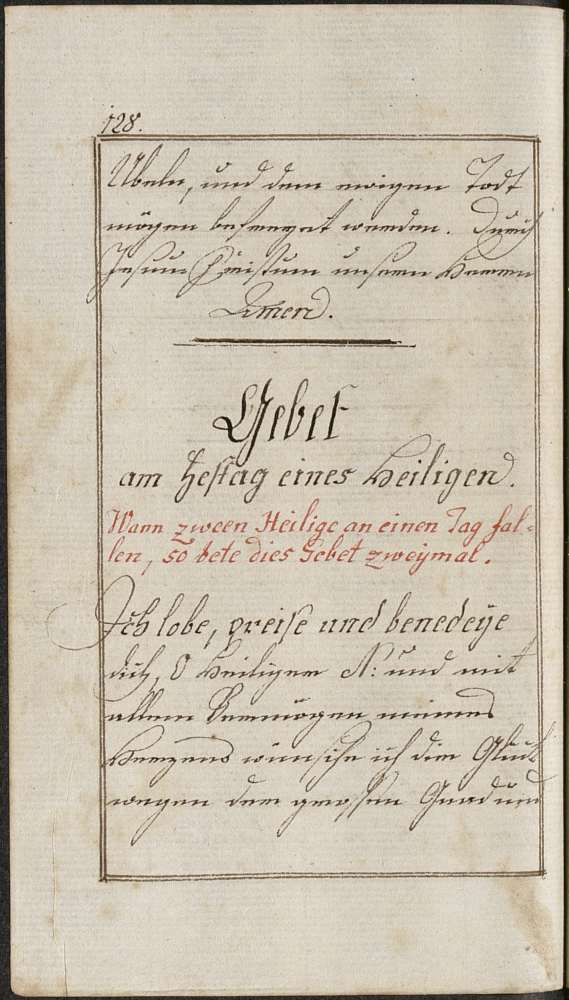 128.
Übeln, und dem ewigen Todt
mögen befreyet werden. Durch
Jesum Christum unsern Herren
Amen.
Gebet
am Festag eines Heiligen.
Wann zween Heilige an einen Tag fal=
len, so bete dies Gebet zweymal.
Ich lobe, preise und benedeye
dich, O Heiliger N: und mit
allem Vermögen meines
Herzens wünsche ich dir Glück
wegen der grossen Gnad und